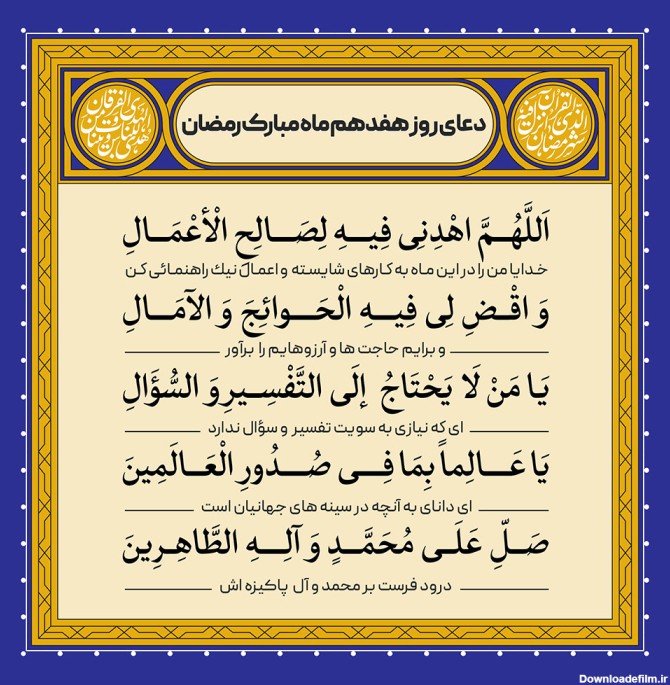 دعای روز هفدهم ماه مبارک رمضان
اَللَّهُمَّ اهْدِنِی فِیهِ لِصَالِحِ الْأَعْمَالِ
خدایا من را در این ماه به کارهای شایسته و اعمال نیك راهنمائی کن
وَ اقْضِ لِی فِیهِ الْحَوائِجَ وَ الآمَالِ
و برایم حاجت ها و آرزوهایم را برآور
یَا مَنْ لَا یَحْتَاجُ إلَی التَّفْسِیرِ وَ السُّؤَالِ
ای که نیازی به سویت تفسیر و سؤال ندارد
یَا عَالِماً بِمَا فِی صُدُورِ الْعَالَمِینَ
ای دانای به آنچه در سینه های جهانیان است
صَلِّ عَلَی مُحَمَّدٍ وَ آلِهِ الطَّاهِرِینَ
درود فرست بر محمد و آل پاکیزه اش
Downloadefilm.ir